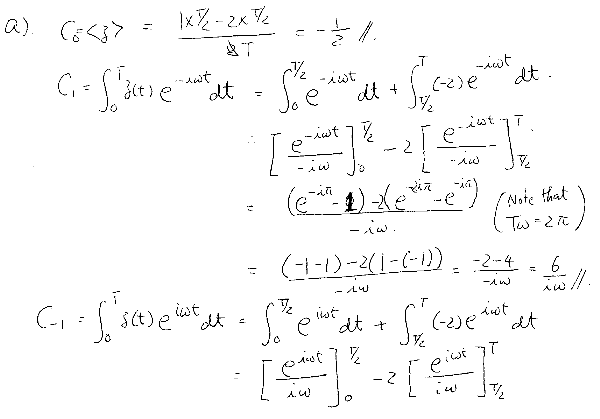 a). C₀ = <z> = (1×T/2 − 2×T/2) / T = −1/2 //.
C₁ = ∫₀ᵀ z(t) e^{-iωt} dt = ∫₀^{T/2} e^{-iωt} dt + ∫_{T/2}^{T} (-2) e^{-iωt} dt.
= [ e^{-iωt} / -iω ]₀^{T/2} − 2 [ e^{-iωt} / -iω ]_{T/2}^{T}.
= ((e^{-iπ} − 1) − 2(e^{-2iπ} − e^{-iπ})) / -iω. (Note that Tω = 2π)
= ((-1-1) − 2(1-(-1))) / -iω = (-2-4) / -iω = 6 / iω //.
C₋₁ = ∫₀ᵀ z(t) e^{iωt} dt = ∫₀^{T/2} e^{iωt} dt + ∫_{T/2}^{T} (-2) e^{iωt} dt
= [ e^{iωt} / iω ]₀^{T/2} − 2 [ e^{iωt} / iω ]_{T/2}^{T}